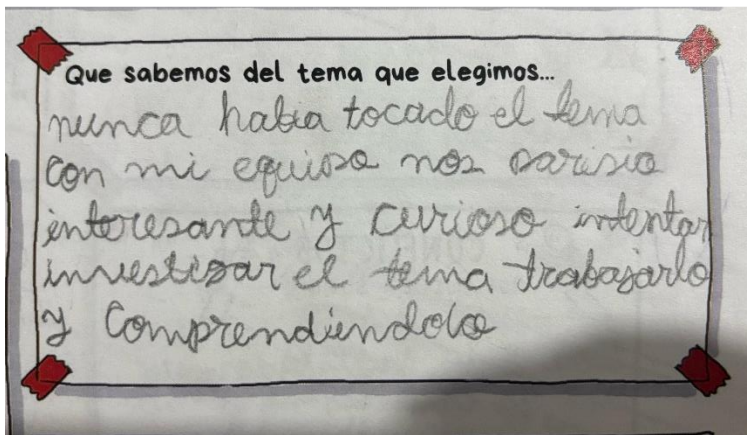 Que sabemos del tema que elegimos...
nunca habia tocado el tema
con mi equipo nos parisio
interesante y curioso intentar
investigar el tema trabajarlo
y Comprendiendolo